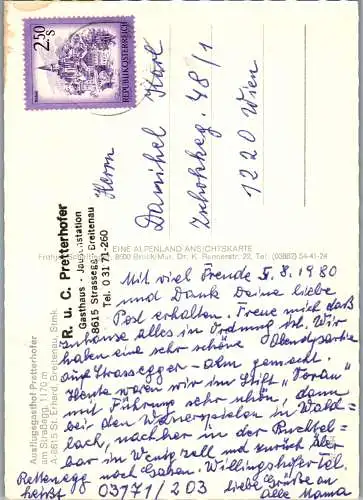 2.50 S
REPUBLIK ÖSTERREICH
Herrn
Karl
Zschokkeg. 48/1
1220 Wien
EINE ALPENLAND ANSICHTSKARTE
8600 Bruck/Mur, Dr. K. Rennerstr. 22, Tel. (03862)
R. u. C. Pretterhofer
Gasthaus - Jausenstation
8615 Strassegg-Breitenau
Tel. 0 31 71-260
Ausflugsgasthof Pretterhofer
am Straßegg, 1170 m
A-8615 St. Erhard, Breitenau, Stmk.
5.8.1980
Mit viel Freude
und Dank Deine liebe
Post erhalten. Freue mich daß
zuhause alles in Ordnung ist. Wir
haben eine sehr schöne Abendpartie
auf Strassegger-alm gemacht.
Heute waren wir im Stift "Vorau"
mit Führung sehr schön, dann
bei den in Wald-
bach, nachher in der
bar in und zurück über
Rettenegg nach
heißt 03171/203
Liebe Grüße an
alle Mama